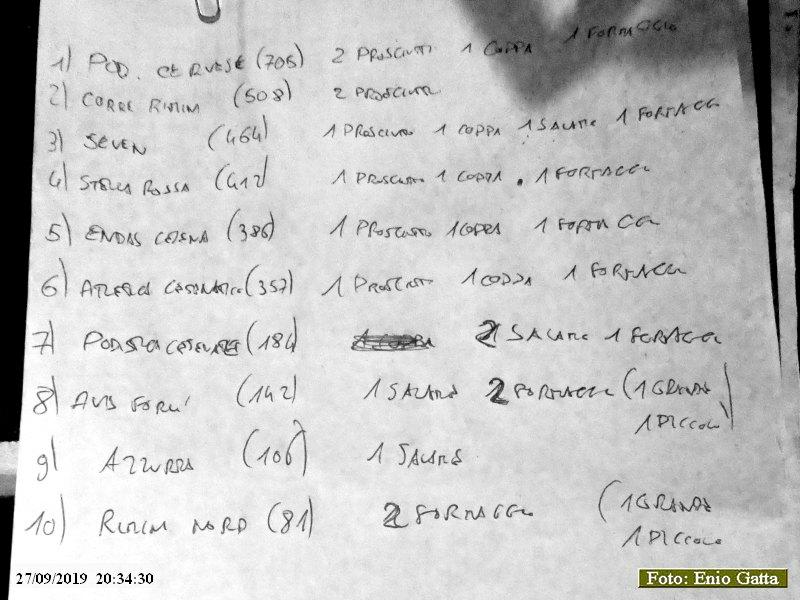 1) POD. CERVESE (705) 2 PROSCIUTTI 1 COPPA 1 FORMAGGIO
2) CORRE RIMINI (508) 2 PROSCIUTTI
3) SEVEN (464) 1 PROSCIUTTO 1 COPPA 1 SALAME 1 FORMAGGIO
4) STELLA ROSSA (412) 1 PROSCIUTTO 1 COPPA 1 FORMAGGIO
5) ENDAS CESENA (386) 1 PROSCIUTTO 1 COPPA 1 FORMAGGIO
6) ATLETICA CESENATICO (357) 1 PROSCIUTTO 1 COPPA 1 FORMAGGIO
7) PODISTICA CESENATE (184) 2 SALAME 1 FORMAGGIO
8) AVIS FORLI' (142) 1 SALAME 2 FORMAGGIO (1 GRANDE
1 PICCOLO)
9) AZZURRA (106) 1 SALAME
10) RIMINI NORD (81) 2 FORMAGGIO (1 GRANDE
1 PICCOLO
27/09/2019 20:34:30
Foto: Enio Gatta